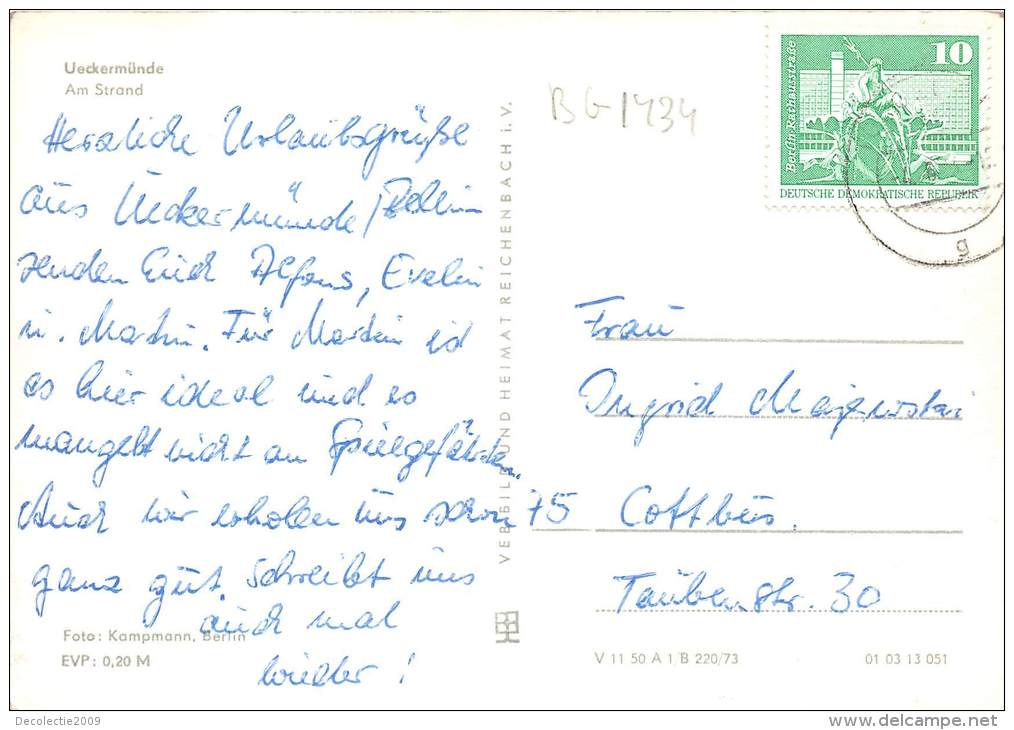 Ueckermünde
Am Strand
BG 1434
10
Berlin Rathausstraße
DEUTSCHE DEMOKRATISCHE REPUBLIK
g
Herzliche Urlaubsgrüße
aus Ueckermünde / Bellin
senden Euch Alfons, Evelin
u. Martin. Für Martin ist
es hier ideal und es
mangelt nicht an Spielgefährten.
Auch wir erholen uns schon
ganz gut. Schreibt uns
auch mal
wieder!
Foto: Kampmann, Berlin
EVP: 0,20 M
VEB BILD UND HEIMAT REICHENBACH i. V.
Frau
Ingrid Majewski
75 Cottbus.
Taubenstr. 30
V 11 50 A 1/B 220/73
01 03 13 051
Decolectie2009
delcampe.net